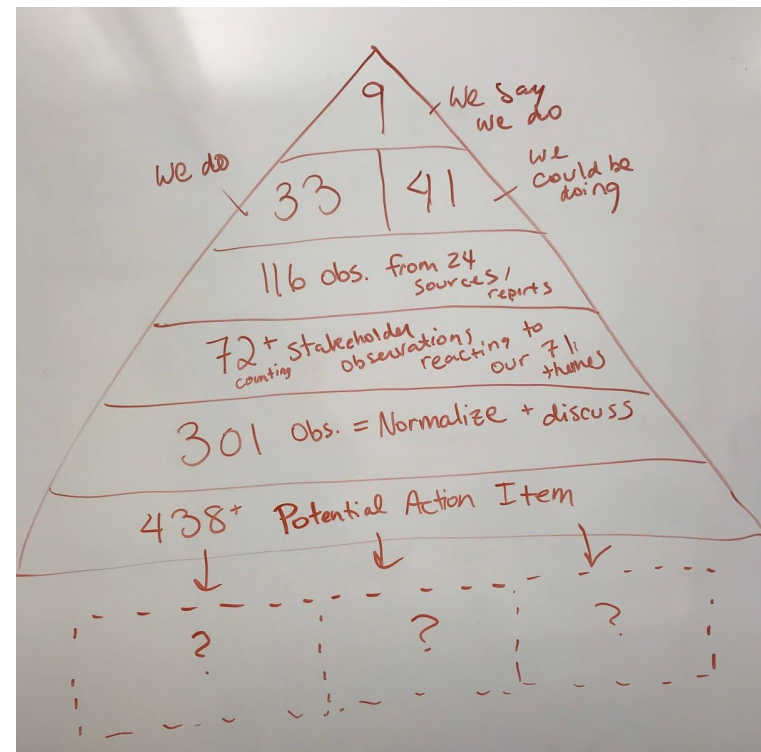 9
we say
we do
we do
33
41
we
could be
doing
116 obs. from 24
sources/
reports
72+ stakeholder
counting
observations
reacting to
our 71
themes
301 Obs. = Normalize + discuss
438+ Potential Action Item
?
?
?